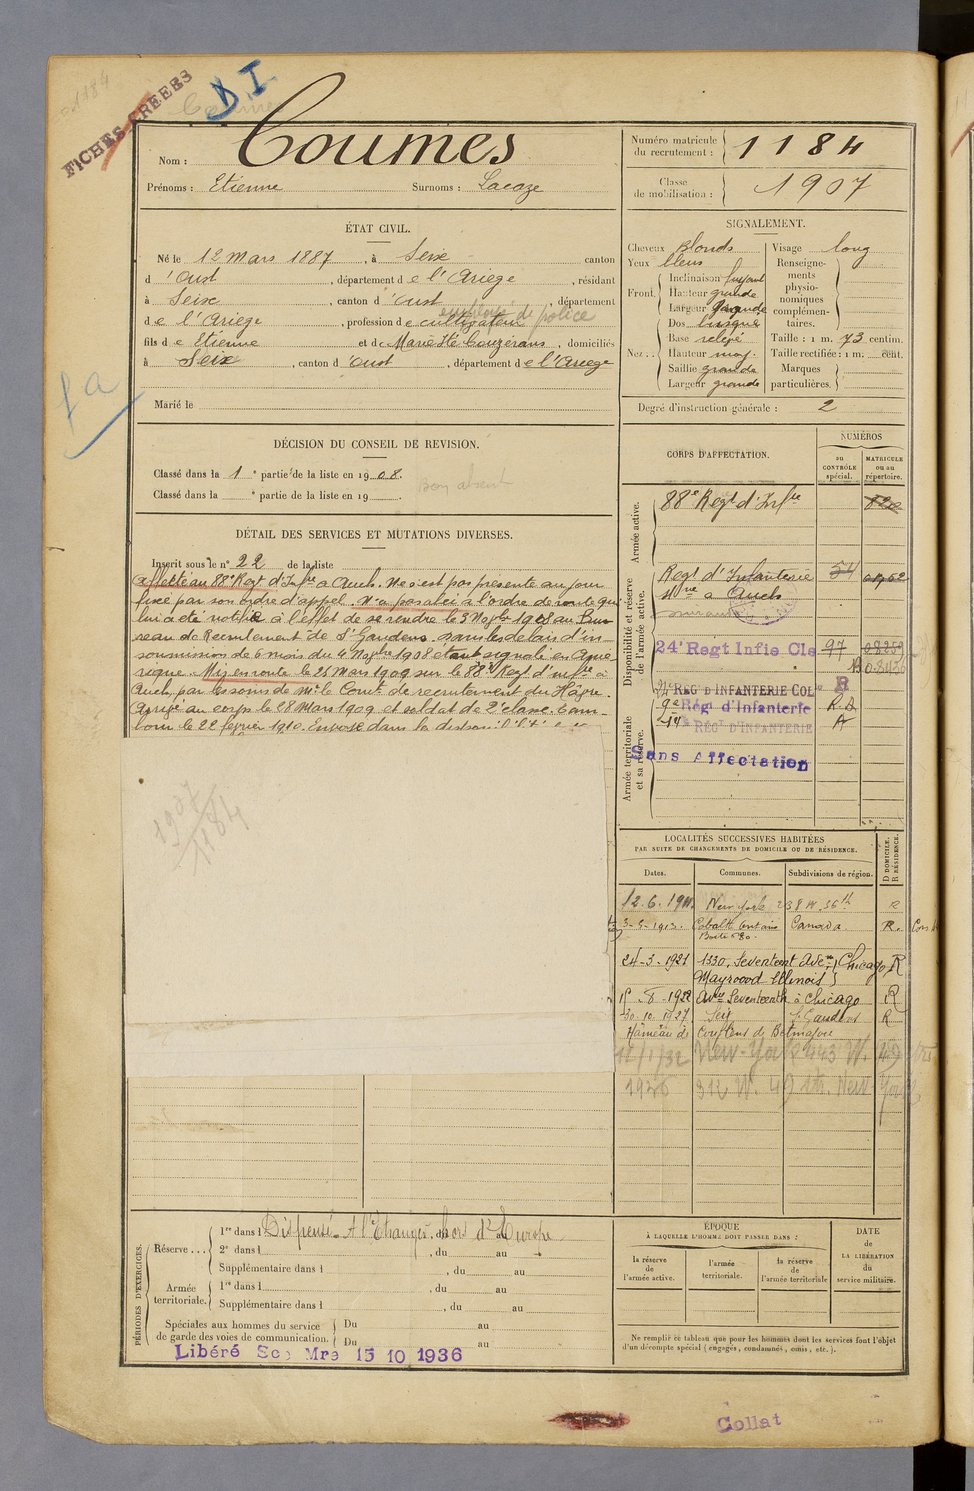 1184
FICHES CRÉÉES
DI
Nom : Coumes
Prénoms : Etienne Surnoms : Lacaze
Numéro matricule du recrutement : 1184
Classe de mobilisation : 1907
ÉTAT CIVIL.
Né le 12 Mars 1887, à Seix canton
d'Oust, département de l'Ariège, résidant
à Seix, canton d'Oust, département
employé de police
de l'Ariège, profession de cultivateur
fils de Etienne et de Marie Hte Couzerans, domiciliés
à Seix, canton d'Oust, département de l'Ariège
Marié le
fa
SIGNALEMENT.
Cheveux Blonds
Yeux bleus
Front. Inclinaison fuyant
Hauteur grande
Largeur grande
Nez.. Dos busqué
Base relevé
Hauteur moy.
Saillie grande
Largeur grande
Visage long
Renseignements physionomiques complémentaires.
Taille : 1 m. 73 centim.
Taille rectifiée : 1 m. cent.
Marques particulières.
Degré d'instruction générale : 2
DÉCISION DU CONSEIL DE REVISION.
Classé dans la 1e partie de la liste en 1908.
Classé dans la e partie de la liste en 19 .
Bon absent
DÉTAIL DES SERVICES ET MUTATIONS DIVERSES.
Inscrit sous le n° 22 de la liste
affecté au 88e Regt d'Infie à Auch. Ne s'est pas présenté au jour
fixé par son ordre d'appel. N'a pas obéi à l'ordre de route qui
lui a été notifié à l'effet de se rendre le 3 Nov bre 1908 au Bu-
reau de Recrutement de St Gaudens dans les délais d'in-
soumission de 6 mois du 4 Nov bre 1908 étant signalé en Amé-
rique. Mis en route le 26 Mars 1909 sur le 88e Reg. d'Infie à
Auch, par les soins de Mr le Comt de recrutement du Hâvre.
Arrivé au corps le 28 Mars 1909 et soldat de 2e classe. Tam-
bour le 22 février 1910. Envoyé dans la dispon:
1907
1184
CORPS D'AFFECTATION.
NUMÉROS
au CONTRÔLE spécial.
MATRICULE ou au répertoire.
Armée active.
88e Regt d'Infie
Disponibilité et réserve de l'armée active.
Regt d'Infanterie
à Auch
24e Regt Infie Cle 97
24e REG D'INFANTERIE COLe R
Armée territoriale et sa réserve.
9e Régt d'Infanterie R.D
14e RÉGt D'INFANTERIE A
Sans Affectation
LOCALITÉS SUCCESSIVES HABITÉES
PAR SUITE DE CHANGEMENTS DE DOMICILE OU DE RÉSIDENCE.
Dates. Communes. Subdivisions de région. D DOMICILE, R RÉSIDENCE.
12.6.1911 New York 238 W. 36th R
3-5-1913 Cobalt Ontario Canada R.
Boite
24-3-1921 1330, Seventeent Avene (Chicago R
Mayrood Illinois)
15-8-1922 Avne Seventeenth à Chicago R
30.10.1927 Seix St Gaudens R
Hameau de Couflens de Betmajou
11/1/32 New-York 443 W. 49
1936 312 W. 49 Str. New-York
PÉRIODES D'EXERCICES.
Réserve... 1re dans l Dispensé. A l'Etranger, hors d'Europe. du au
2e dans l , du au
Supplémentaire dans l , du au
Armée territoriale. 1re dans l , du au
Supplémentaire dans l , du au
Spéciales aux hommes du service de garde des voies de communication. Du au
Du au
Libéré Sce Mre 15 10 1936
ÉPOQUE
À LAQUELLE L'HOMME DOIT PASSER DANS :
la réserve de l'armée active.
l'armée territoriale.
la réserve de l'armée territoriale
DATE de LA LIBÉRATION du service militaire.
Ne remplir ce tableau que pour les hommes dont les services font l'objet
d'un décompte spécial (engagés, condamnés, omis, etc.).
Collat